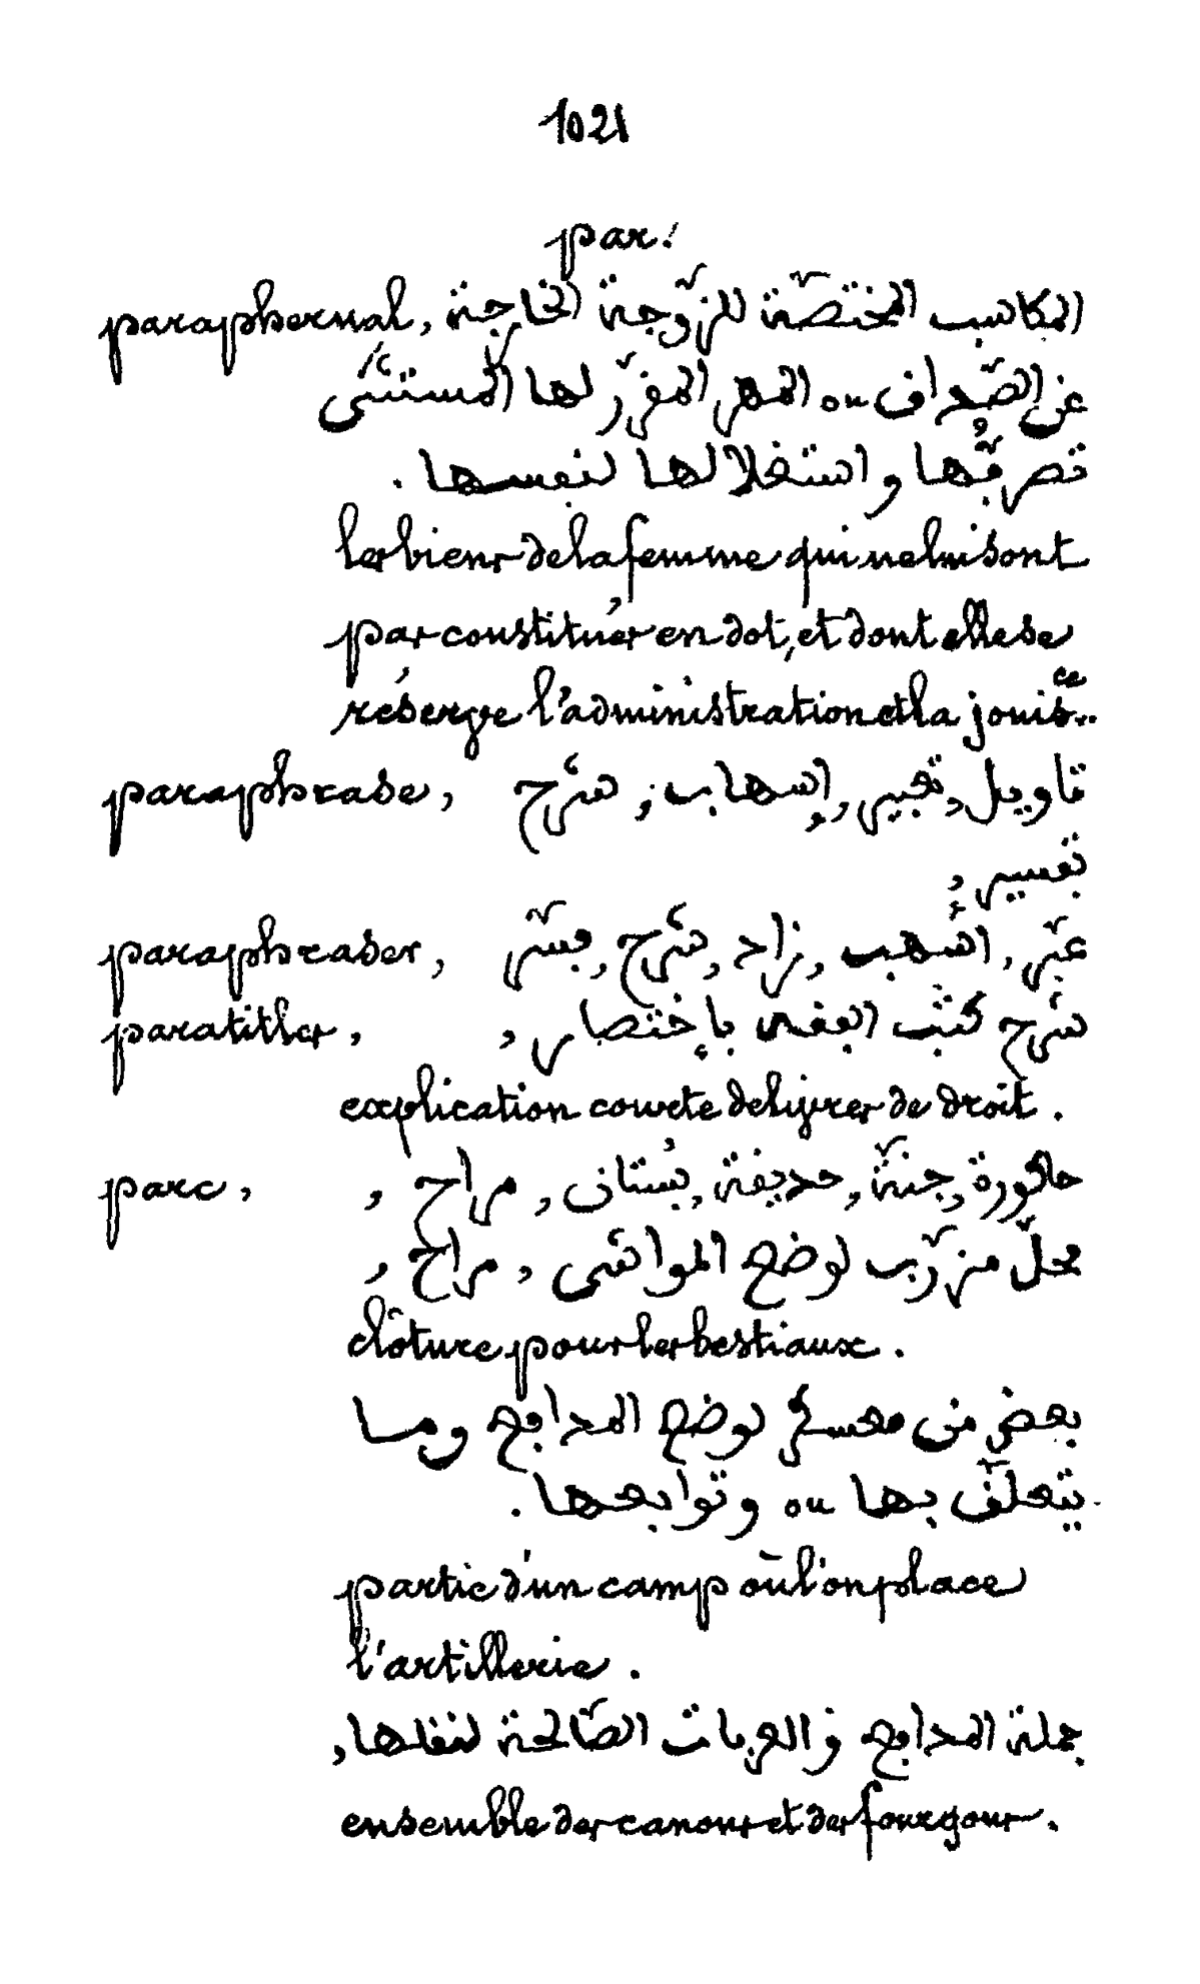 1021
par.
paraphernal, المكاسب المختصّة للزّوجة الخارجة
عن الصّداق ou المهر المقرّر لها المستثنى
تصرّفها واستغلالها لنفسها.
les biens de la femme qui ne lui sont
pas constitués en dot, et dont elle se
réserve l'administration et la jouis..ce
paraphrase, تاويل, تعبير, إسهاب, شرح
تفسير,
paraphraser, عبّر, أسهب, زاد, شرح, فسّر
paratitles, شرح كتب الفقه بإختصار,
explication courte de livres de droit.
parc, حاكورة, جنّة, حديقة, بستان, مراح,
محلّ مزرّب لوضع المواشى, مراح,
clôture pour les bestiaux.
بعض من معسكر لوضع المدافع وما
يتعلّق بها ou وتوابعها.
partie d'un camp où l'on place
l'artillerie.
جملة المدافع والعربات الصّالحة لنقلها,
ensemble des canons et des fourgons.